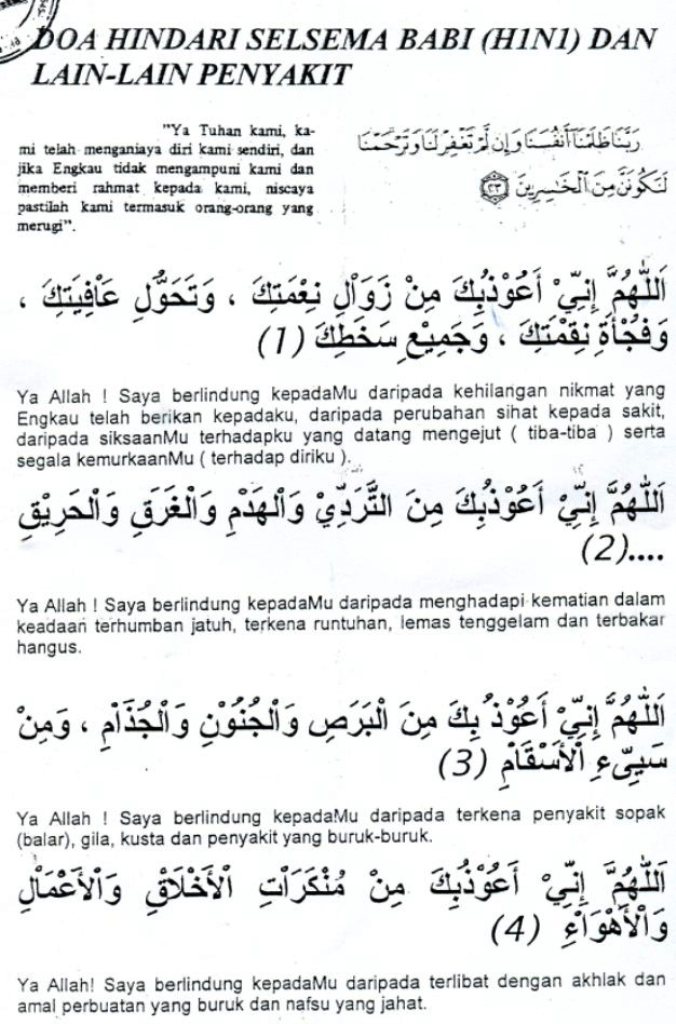 DOA HINDARI SELSEMA BABI (H1N1) DAN
LAIN-LAIN PENYAKIT
"Ya Tuhan kami, ka-
mi telah menganiaya diri kami sendiri, dan
jika Engkau tidak mengampuni kami dan
memberi rahmat kepada kami, niscaya
pastilah kami termasuk orang-orang yang
merugi".
رَبَّنَا ظَلَمْنَا أَنفُسَنَا وَإِن لَّمْ تَغْفِرْ لَنَا وَتَرْحَمْنَا
لَنَكُونَنَّ مِنَ الْخَاسِرِينَ ٢٣
اَللّٰهُمَّ إِنِّيْ أَعُوْذُبِكَ مِنْ زَوَالِ نِعْمَتِكَ ، وَتَحَوُّلِ عَافِيَتِكَ ،
وَفُجْأَةِ نِقْمَتِكَ ، وَجَمِيْعِ سَخَطِكَ (1)
Ya Allah ! Saya berlindung kepadaMu daripada kehilangan nikmat yang
Engkau telah berikan kepadaku, daripada perubahan sihat kepada sakit,
daripada siksaanMu terhadapku yang datang mengejut ( tiba-tiba ) serta
segala kemurkaanMu ( terhadap diriku ).
اَللّٰهُمَّ إِنِّيْ أَعُوْذُبِكَ مِنَ التَّرَدِّيْ وَالْهَدْمِ وَالْغَرَقِ وَالْحَرِيْقِ
....(2)
Ya Allah ! Saya berlindung kepadaMu daripada menghadapi kematian dalam
keadaan terhumban jatuh, terkena runtuhan, lemas tenggelam dan terbakar
hangus.
اَللّٰهُمَّ إِنِّيْ أَعُوْذُ بِكَ مِنَ الْبَرَصِ وَالْجُنُوْنِ وَالْجُذَامِ ، وَمِنْ
سَيِّىءِ الْأَسْقَامِ (3)
Ya Allah ! Saya berlindung kepadaMu daripada terkena penyakit sopak
(balar), gila, kusta dan penyakit yang buruk-buruk.
اَللّٰهُمَّ إِنِّيْ أَعُوْذُبِكَ مِنْ مُنْكَرَاتِ الْأَخْلَاقِ وَالْأَعْمَالِ
وَالْأَهْوَاءِ (4)
Ya Allah! Saya berlindung kepadaMu daripada terlibat dengan akhlak dan
amal perbuatan yang buruk dan nafsu yang jahat.